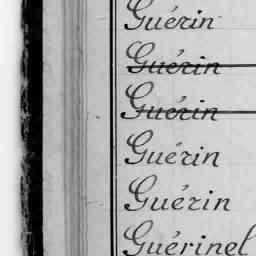 Guérin
Guérin
Guérin
Guérin
Guérin
Guérinel